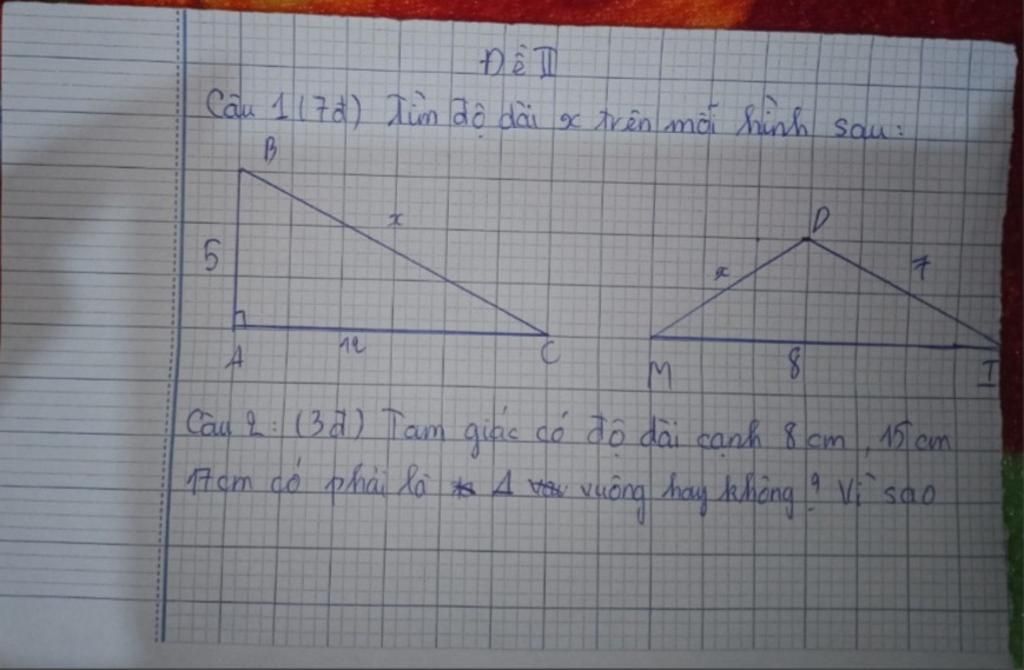 Đề II
Câu 1 (7đ) Tìm độ dài x trên mỗi hình sau:
B
x
5
A
12
C
D
x
7
M
8
I
Câu 2: (3đ) Tam giác có độ dài cạnh 8 cm, 15 cm
17cm có phải là Δ vuông hay không? Vì sao